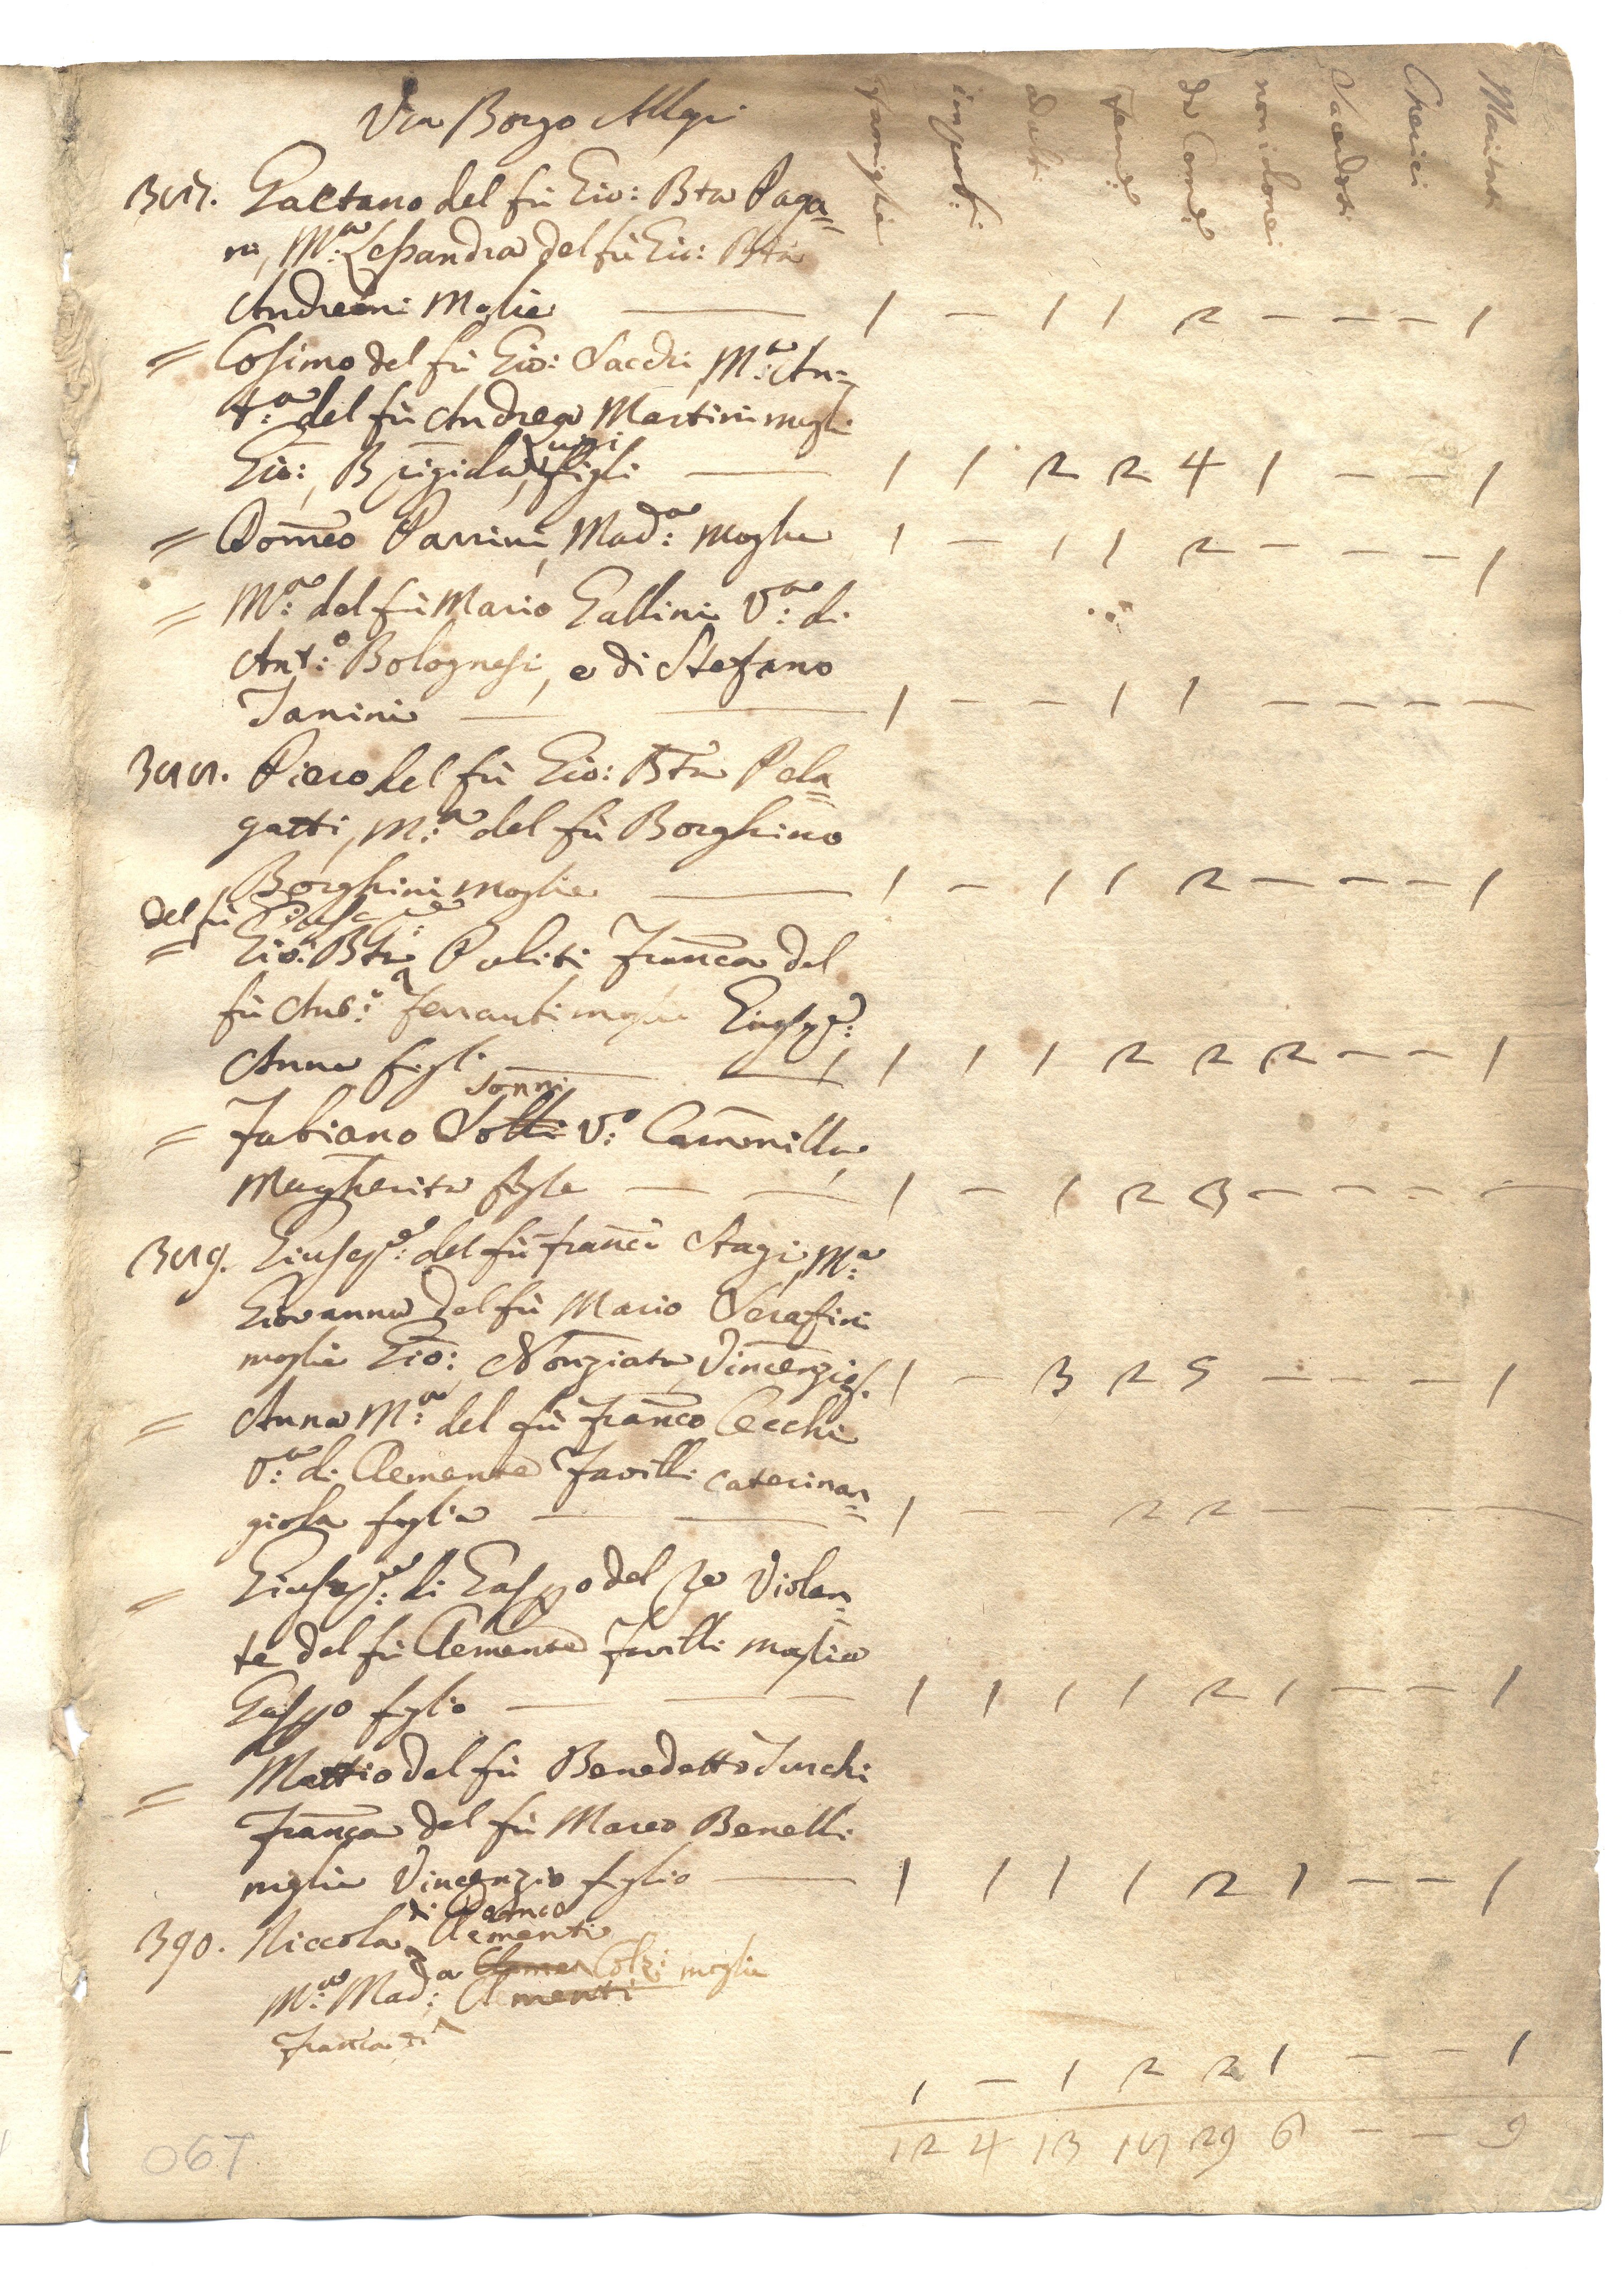 Via Borgo Allegri
Famiglie impub: adulti Fem:e da Com:e non idonei Sacerdoti Cherici Maritati
387. Gaetano del fù Gio: Bta Paga=
ni, M:a Lessandra del fù Gio: Bta
Andreini Moglie — 1 – 1 1 2 – – – 1
= Cosimo del fù Gio: Sacchi M:a An=
t:a del fù Andrea Martini mogli
Luigi
Gio:, Brigida, figli — 1 1 2 2 4 1 – – 1
= Domeco Parrini, Mad:a moglie 1 – 1 1 2 – – – 1
= M:a del fù Mario Gallini V:a di
Ant:o Bolognesi, e di Stefano
Janini — 1 – – 1 1 – – – –
388. Piero del fù Gio: Bta Pela=
gatti, M:a del fù Borghino
Borghini moglie — 1 – 1 1 2 – – – 1
del fù Giusepe:
= Gio: Bta Puliti Franca del
fù Ant:o Ferranti moglie Giuseppe:
Anna figli — 1 1 1 1 2 2 2 – – 1
Sonni
= Fabiano Solli V:o Cammilla,
Margherita figle — 1 – 1 2 3 – – – –
389. Giusepe: del fù Franco Stagi, M:a
Giovanna del fù Mario Serafini
moglie Gio: Nonziata, Vincenzio f. 1 – 3 2 5 – – – 1
= Anna M:a del fù Franco Cecchi
V:a di Clemente Favilli Caterinan=
giola figlia — 1 – – 2 2 – – – –
= Giusepe: di Gasppo del Re Violan=
te del fù Clemente Favilli moglie
Gasppo figlio — 1 1 1 1 2 1 – – 1
= Mattio del fù Benedetto Turchi
Franca del fù Marco Benelli
moglie Vincenzio figlio — 1 1 1 1 2 1 – – 1
di Domco
390. Niccola Clementi
M:a Mad:a Cleme Colzi moglie
Clementi
Franca di
1 – 1 2 2 1 – – 1
12 4 13 17 29 6 – – 9
067